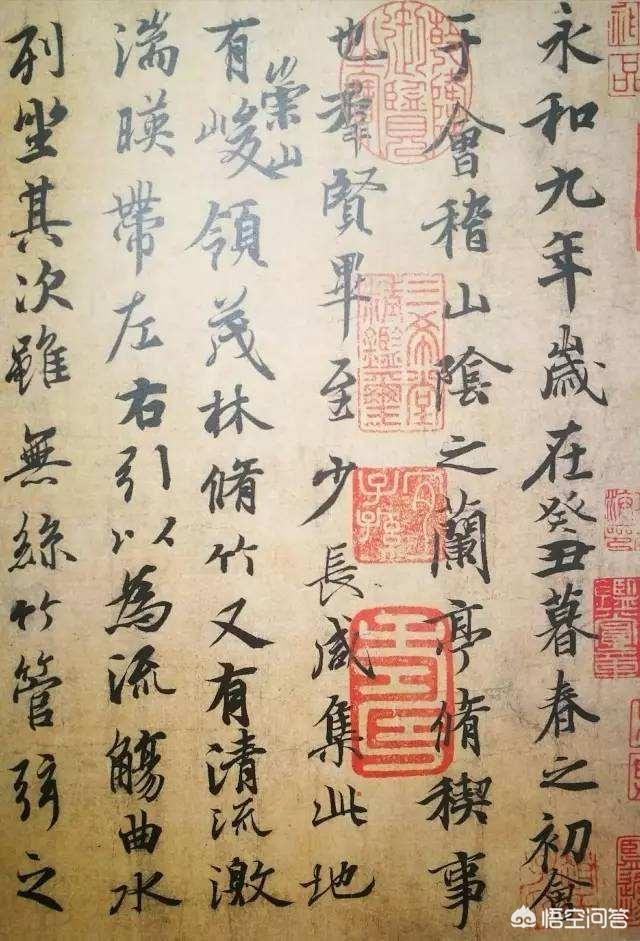 永和九年歲在癸丑暮春之初會
于會稽山陰之蘭亭脩稧事
也羣賢畢至少長咸集此地
有崇山峻領茂林脩竹又有清流激
湍暎帶左右引以為流觴曲水
列坐其次雖無絲竹管弦之
三希堂精鑑璽
宜子孫
神品
悟空问答